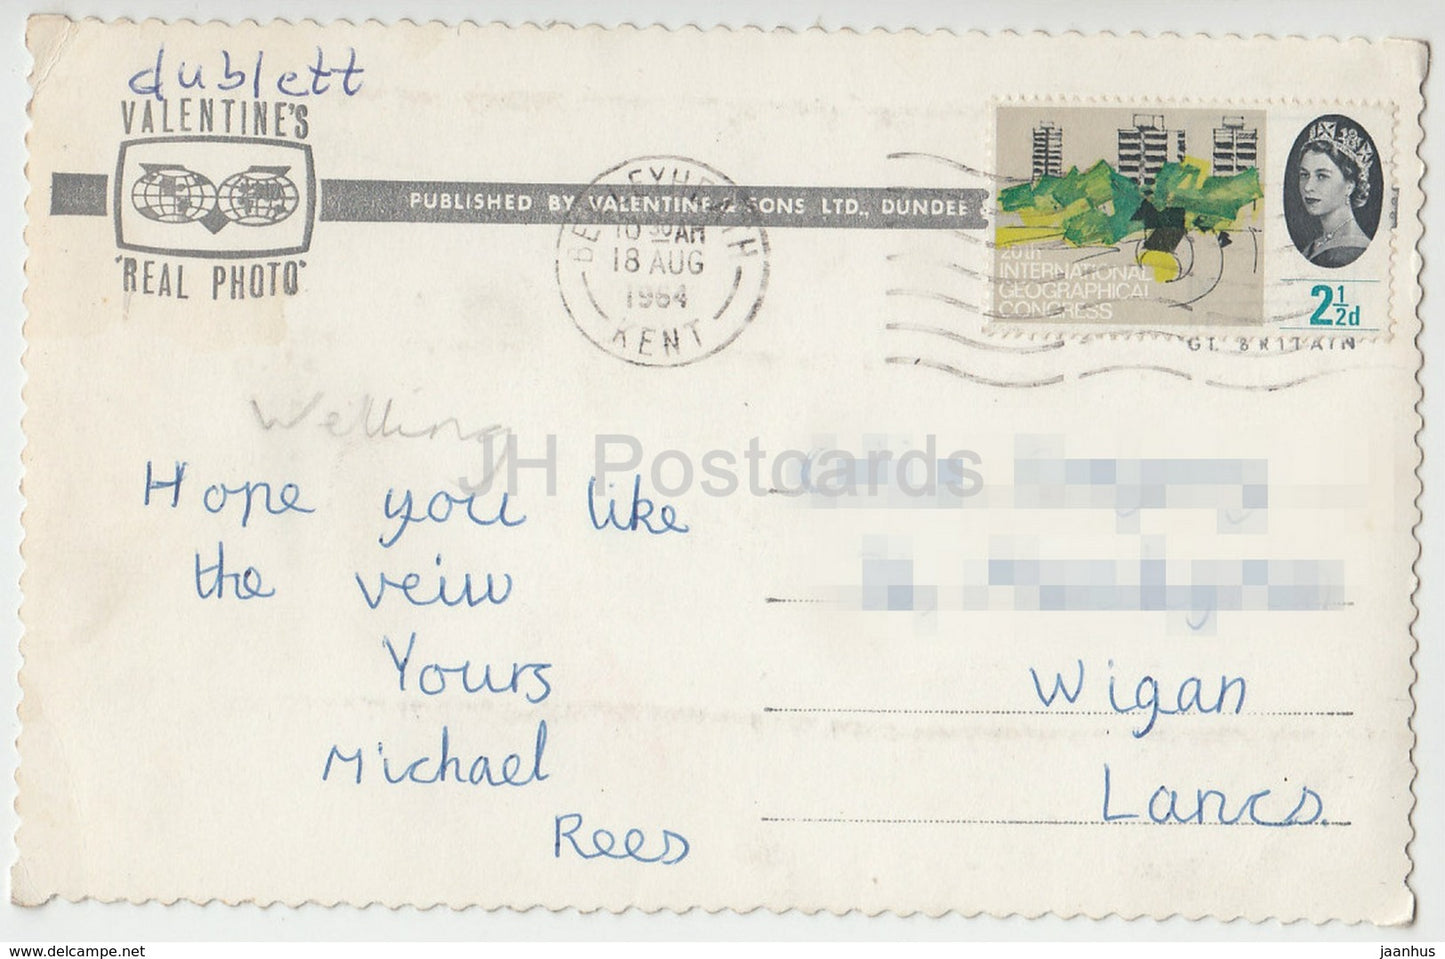 dublett
VALENTINE'S
"REAL PHOTO"
PUBLISHED BY VALENTINE & SONS LTD., DUNDEE &
BEXLEYHEATH
10 30 AM
18 AUG
1964
KENT
20th
INTERNATIONAL
GEOGRAPHICAL
CONGRESS
2½d
GT. BRITAIN
Welling
JH Postcards
Hope you like
the veiw
Yours
Michael
Rees
Wigan
Lancs.
www.delcampe.net
jaanhus